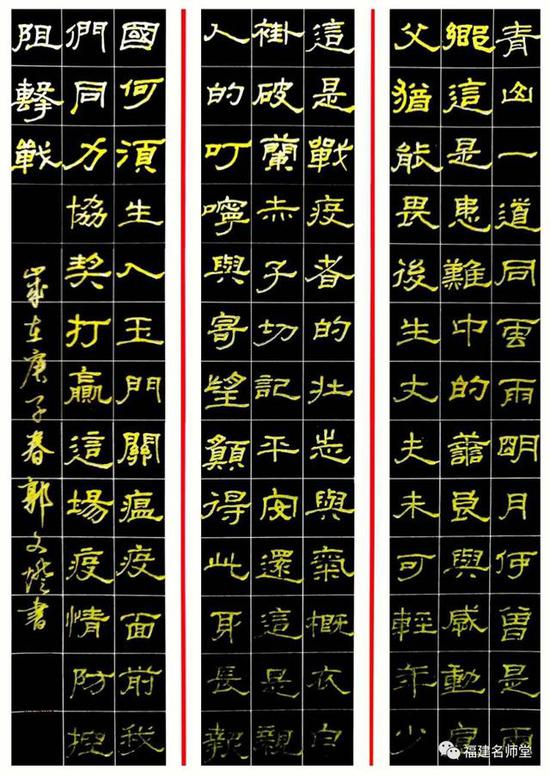 青山一道同雲雨明月何曾是兩
鄉這是患難中的善良與感動宣
父猶能畏後生丈夫未可輕年少
這是戰疫者的壯志與氣概衣白
褂破蘭赤子切記平安還這是親
人的叮嚀與寄望願得此身長報
國何須生入玉門關瘟疫面前我
們同力協契打贏這場疫情防控
阻擊戰
歲在庚子春郭文書
福建名师堂